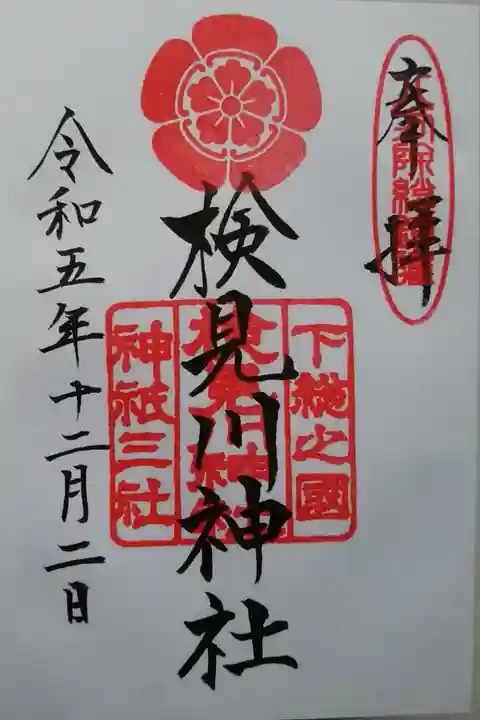 奉拝
検見川神社
下総之國
検見川神社
神祇三社
令和五年十二月二日